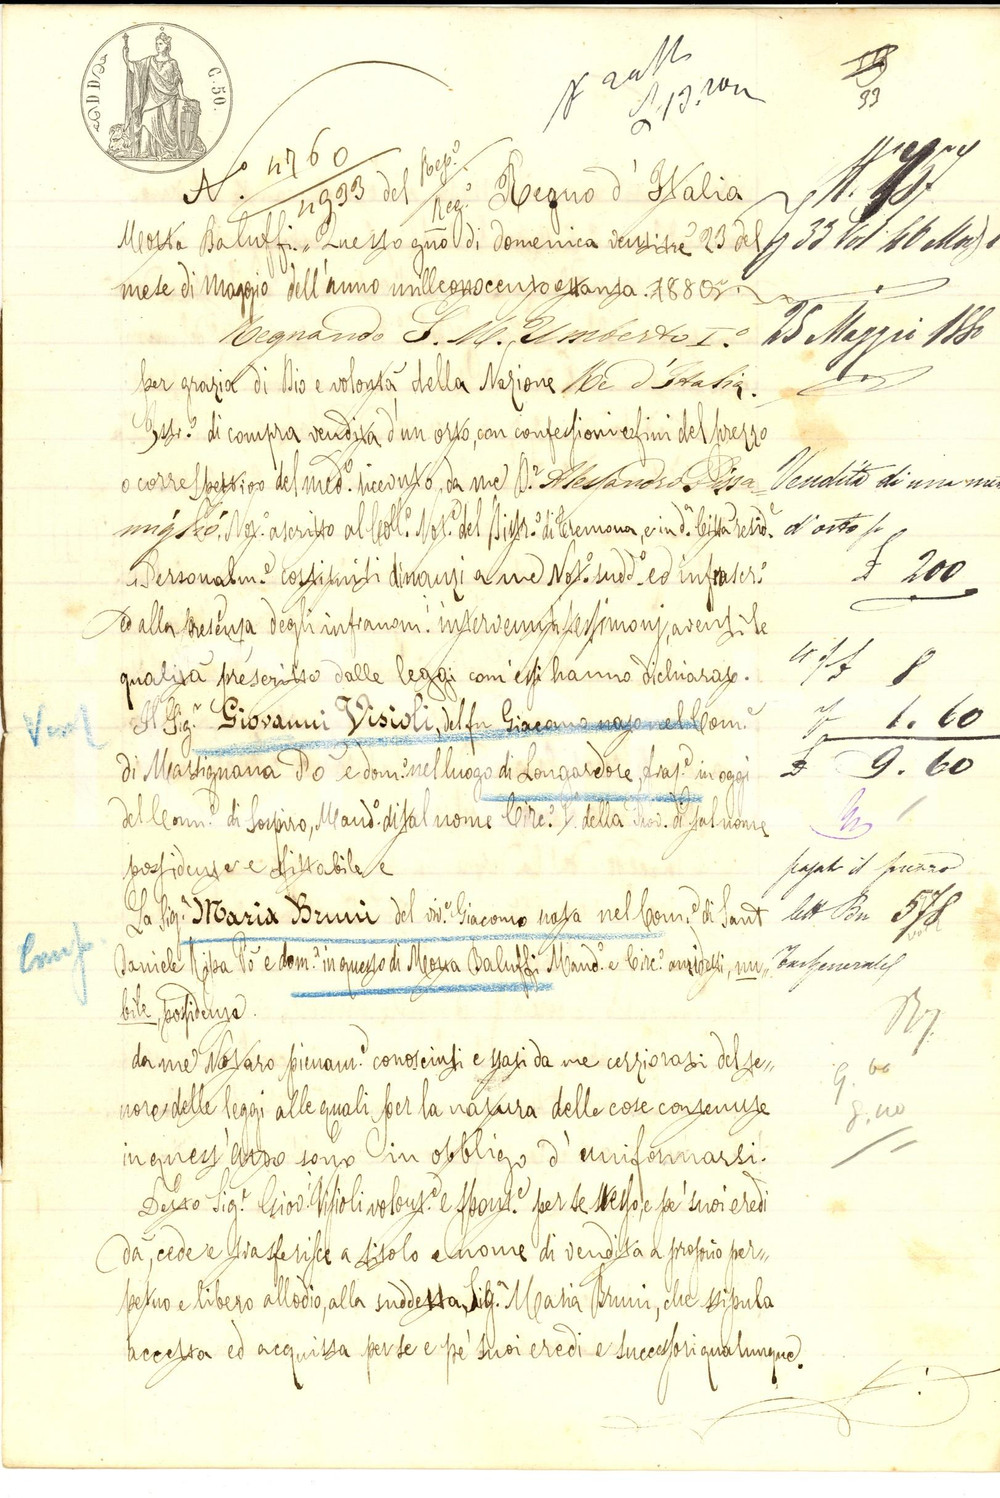 C. 50.
N.° 4760 / 4933 del Rep.° / Reg.° Regno d'Italia
Motta Baluffi. Questo gno di domenica ventitre 23 del
mese di Maggio dell'anno millottocentottanta. 1880.
Regnando S. M. Umberto I.°
per grazia di Dio e volontà della Nazione Re d'Italia.
Istr.° di compra vendita d'un orto, con confessioni e fini del prezzo
o correspettivo del med.° ricevuto, da me D.r Alessandro
Not.° ascritto al Coll.° Not.e del Distr.° di Cremona, e in d.a Città resid.e
Personalm.e costituiti dinanzi a me Not.° sudd.° ed infrascr.°
ed alla presenza degli infranom.i intervenuti testimonj, aventi le
qualità prescritte dalle leggi com'essi hanno dichiarato.
Il Sig.r Giovanni Visioli, del fu Giacomo nato nel Com.e
di Martignana Po e dom.° nel luogo di Longardore, fraz.e in oggi
del Com.e di Sospiro, Mand.° di tal nome Circ.° della Prov. di tal nome
possidente e fittabile e
La Sig.a Maria Bruni del viv.e Giacomo nata nel Com.e di Sant
Daniele Ripa Po e dom.a in questo di Motta Baluffi Mand.° e Circ.° anzidetti, nu=
bile, possidente.
da me Notaro pienam.e conosciuti e stati da me cerziorati del te=
nore delle leggi alle quali per la natura delle cose contenute
in quest'atto sono in obbligo d'uniformarsi.
Detto Sig.r Giov.i Visioli volont.e e spont.e per se stesso, e pe' suoi eredi
dà, cede e trasferisce a titolo e nome di vendita a proprio per=
petuo e libero allodio, alla suddetta Sig.a Maria Bruni, che stipula
accetta ed acquista per se e pe' suoi eredi e successori qualunque.
33 Vol 46
25 Maggio 1880
Vendita di una
d'orto p
£ 200
8
1. 60
£ 9. 60
pagato il prezzo
Bn 578
Vend
Comp.